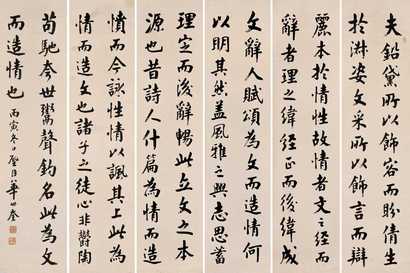 夫鉛黛所以飾容而盼倩生
於淑姿文采所以飾言而辯
麗本於情性故情者文之經而
辭者理之緯經正而後緯成
文辭人賦頌為文而造情何
以明其然蓋風雅之興志思蓄
理定而後辭暢此立文之本
源也昔詩人什篇為情而造
憤而吟詠性情以諷其上此為
情而造文也諸子之徒心非鬱陶
苟馳夸世鬻聲釣名此為文
而造情也 丙寅冬 璧臣華世奎